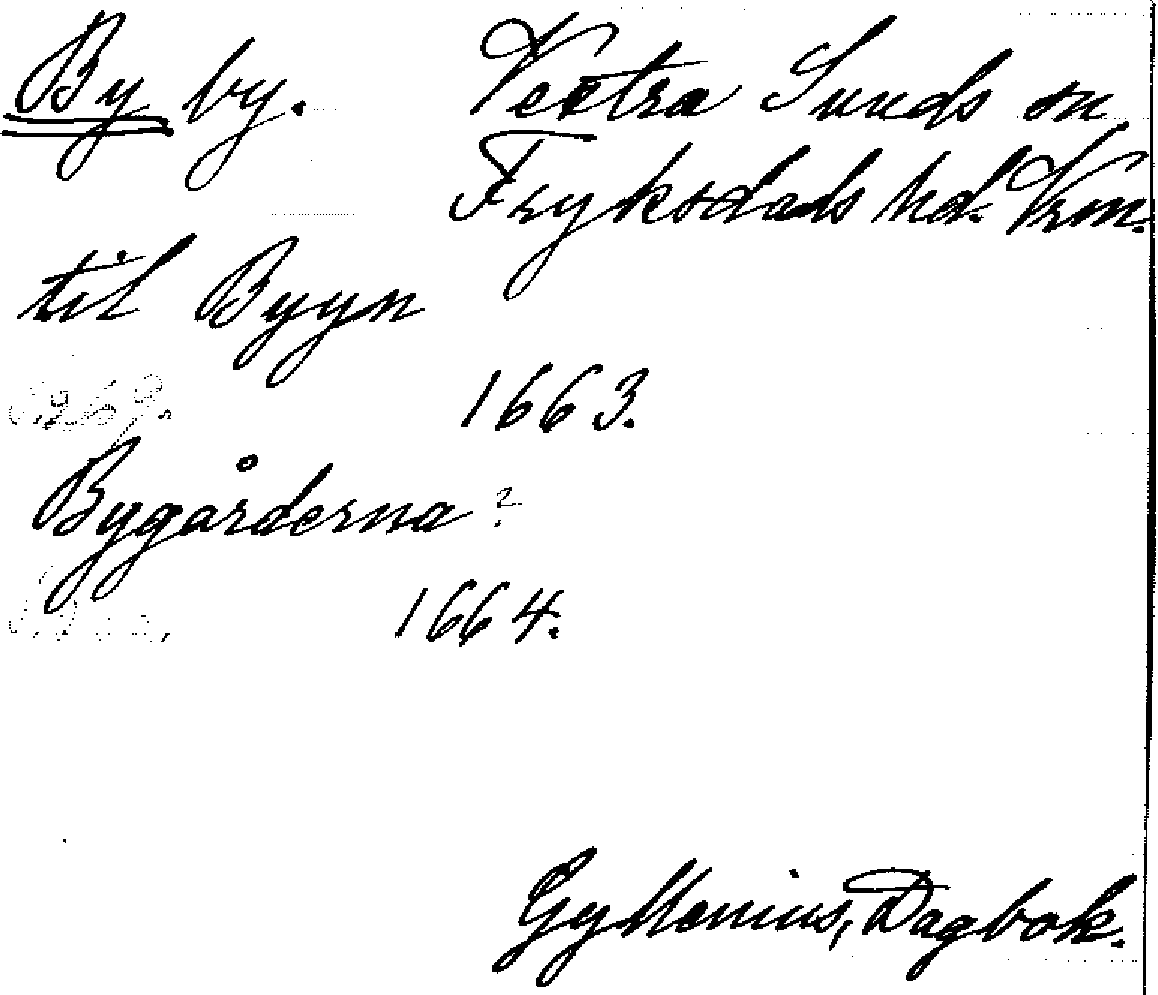 By by. Vestra Sunds sn.
Fryksdals hd. Vrm.
til Byyn
1663.
Bygårderna ?
1664.
Gyllenius, Dagbok.